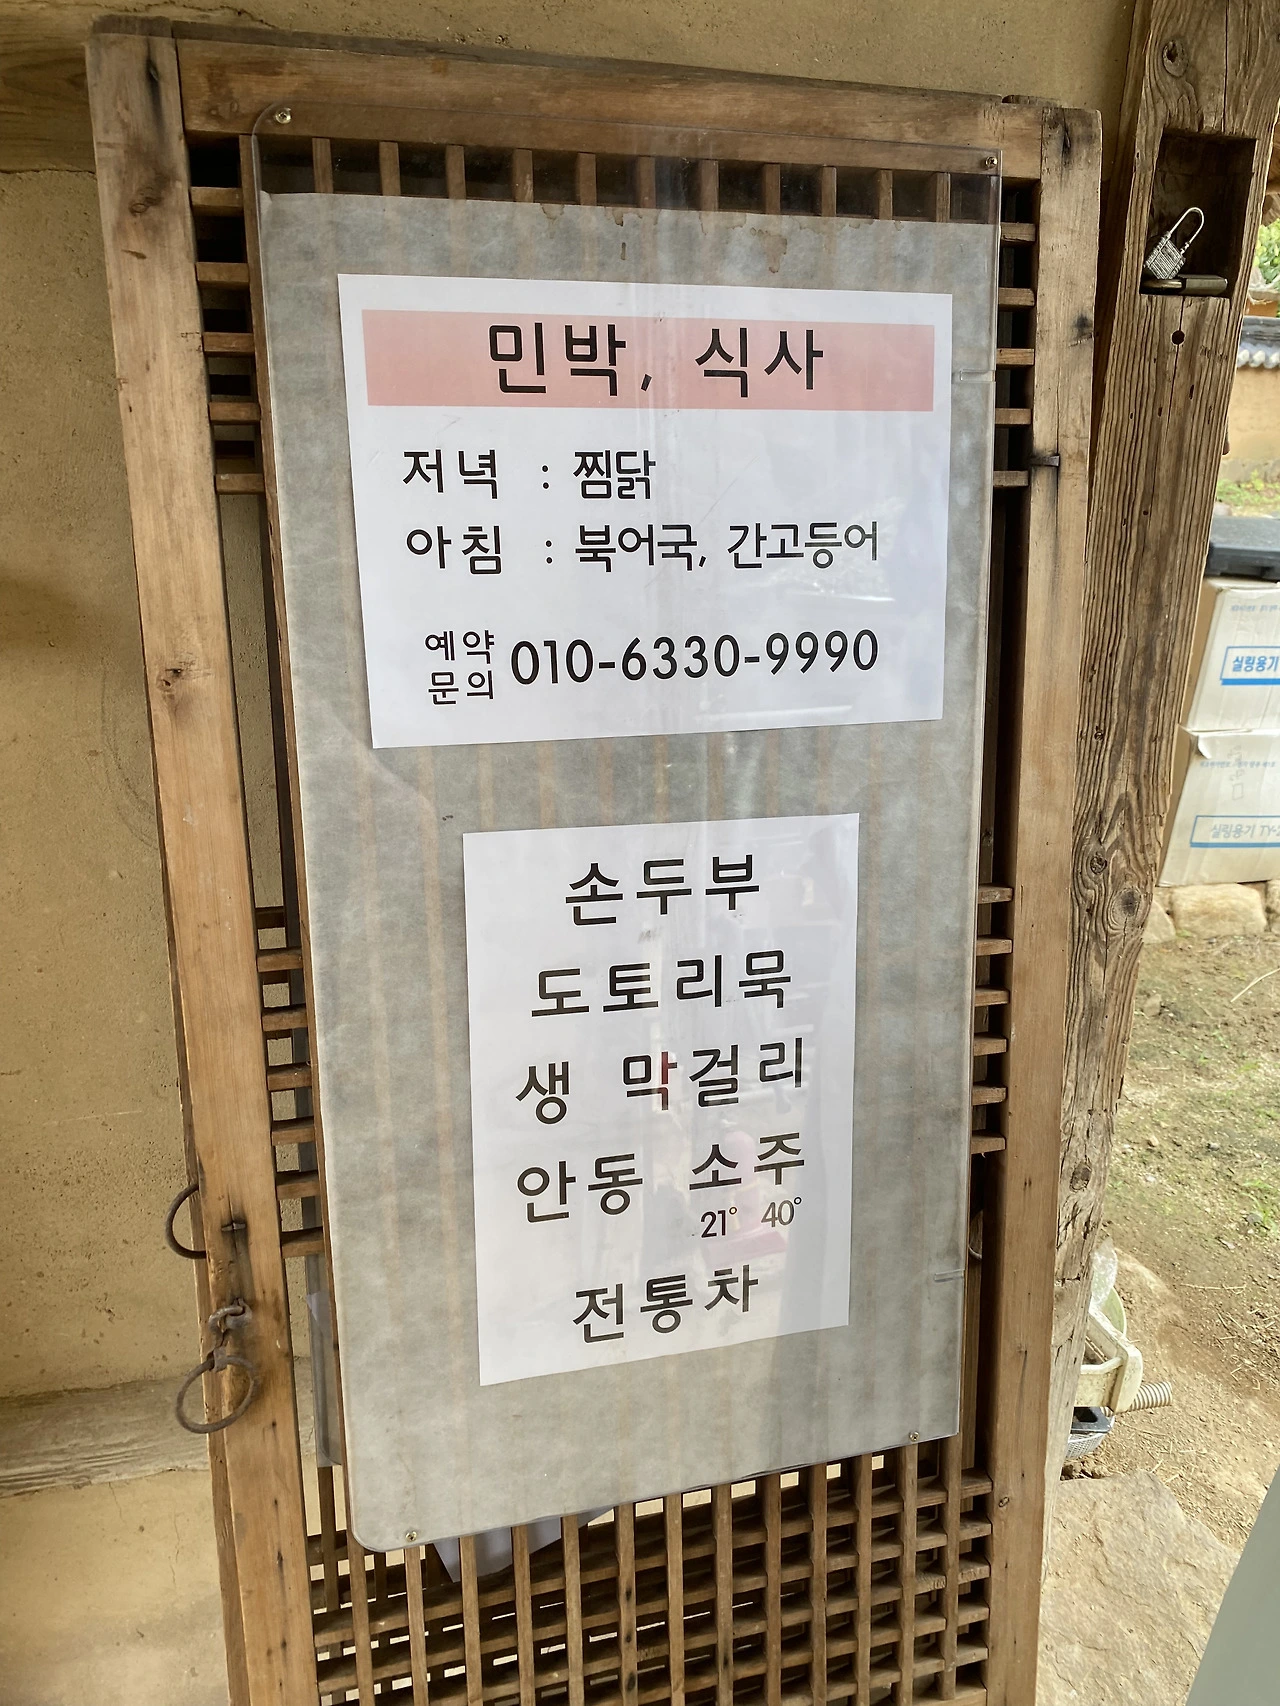 민박, 식사
저녁 : 찜닭
아침 : 북어국, 간고등어
예약
문의 010-6330-9990
손두부
도토리묵
생 막걸리
안동 소주
21° 40°
전통차
실링용기
실링용기 TY-